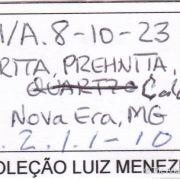 1/A. 8-10-23
RITA, PREHNITA,
QUARTZO Cal
Nova Era, MG
. 2. 1. 1-10
OLEÇÃO LUIZ MENEZE